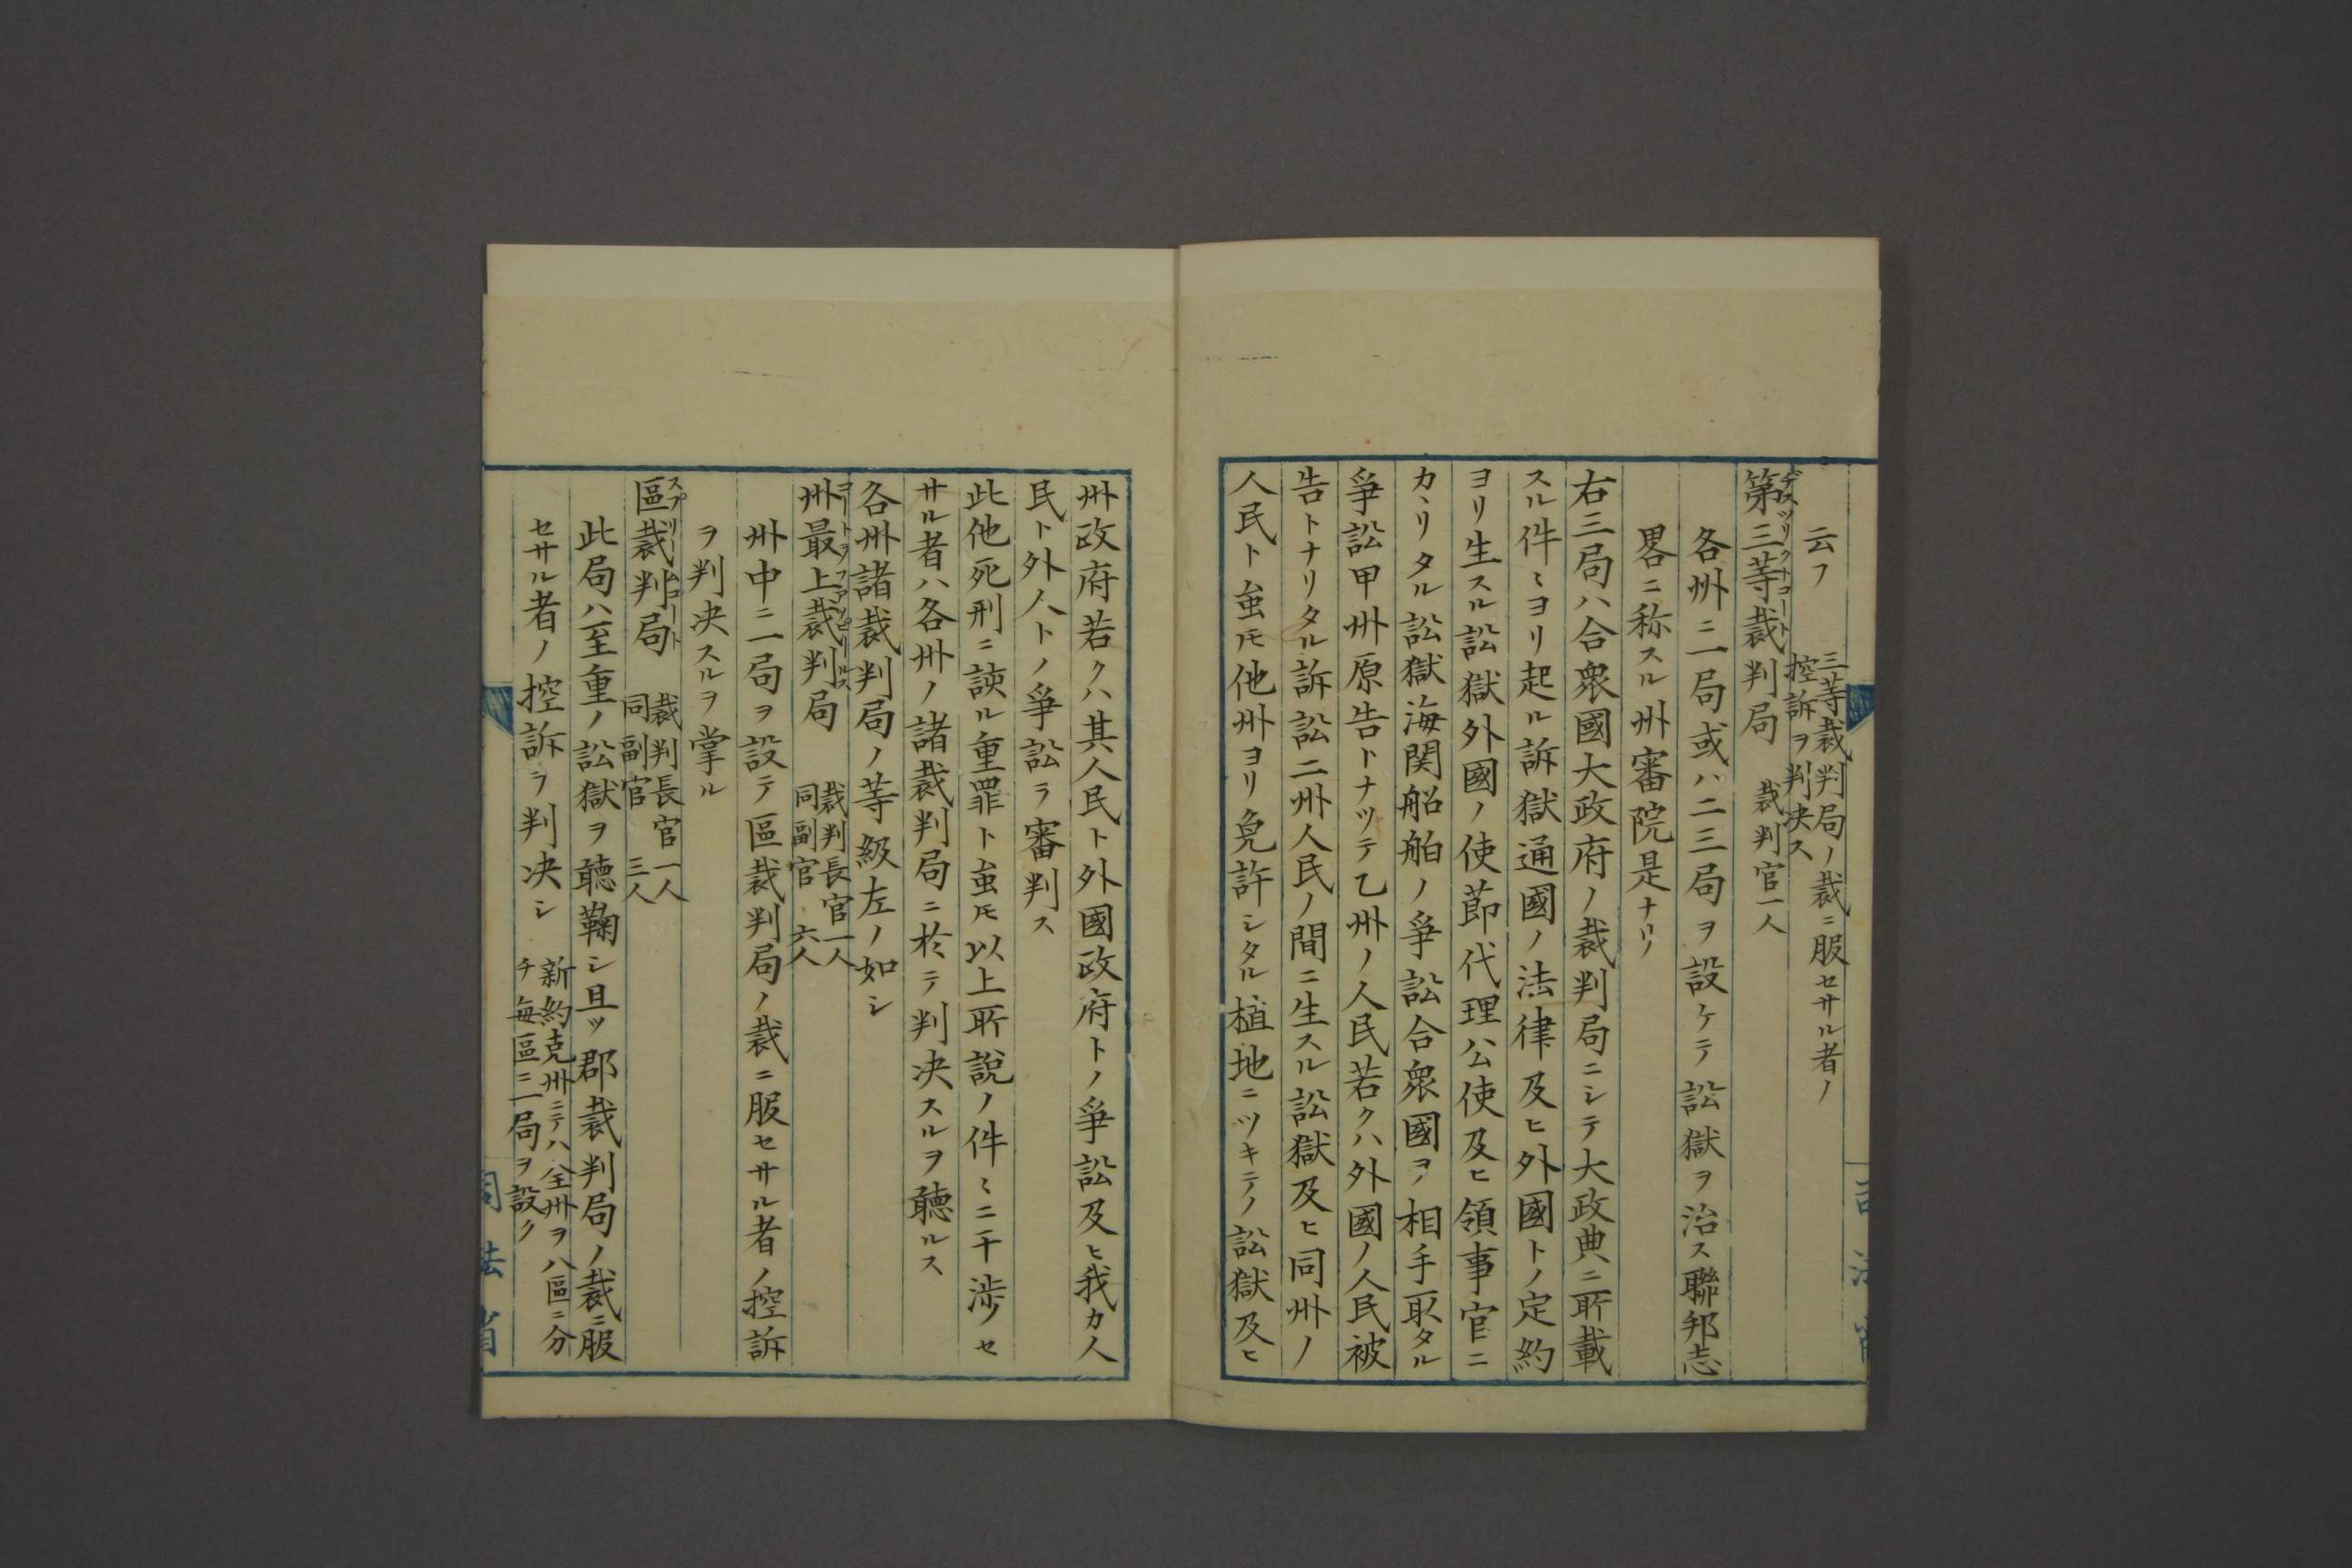 云フ 三等裁判局ノ裁ニ服セサル者ノ
控訴ヲ判决ス
デスツリクトコート
第三等裁判局 裁判官一人
各州ニ一局或ハ二三局ヲ設ケテ訟獄ヲ治ス聯邦志
畧ニ称スル州審院是ナリ
右三局ハ合衆國大政府ノ裁判局ニシテ大政典ニ所載
スル件〻ヨリ起ル訴獄通國ノ法律及ヒ外國トノ定約
ヨリ生スル訟獄外國ノ使節代理公使及ヒ領事官ニ
カヽリタル訟獄海関船舶ノ爭訟合衆國ヲ相手取タル
爭訟甲州原告トナツテ乙州ノ人民若クハ外國ノ人民被
告トナリタル訴訟二州人民ノ間ニ生スル訟獄及ヒ同州ノ
人民ト虽𪜈他州ヨリ免許シタル植地ニツキテノ訟獄及ヒ
州政府若クハ其人民ト外國政府トノ爭訟及ヒ我カ人
民ト外人トノ爭訟ヲ審判ス
此他死刑ニ該ル重罪ト虽𪜈以上所説ノ件〻ニ干渉セ
サル者ハ各州ノ諸裁判局ニ於テ判决スルヲ聽ルス
各州諸裁判局ノ等級左ノ如シ
コートヲフアツピールス
州最上裁判局 裁判長官一人
同副官 六人
州中ニ一局ヲ設テ區裁判局ノ裁ニ服セサル者ノ控訴
ヲ判决スルヲ掌ル
區裁判局 裁判長官一人
同副官 三人
此局ハ至重ノ訟獄ヲ聽鞠シ且ツ郡裁判局ノ裁ニ服
セサル者ノ控訴ヲ判决シ 新約克州ニテハ全州ヲ八區ニ分
チ毎區ニ一局ヲ設ク
司法省